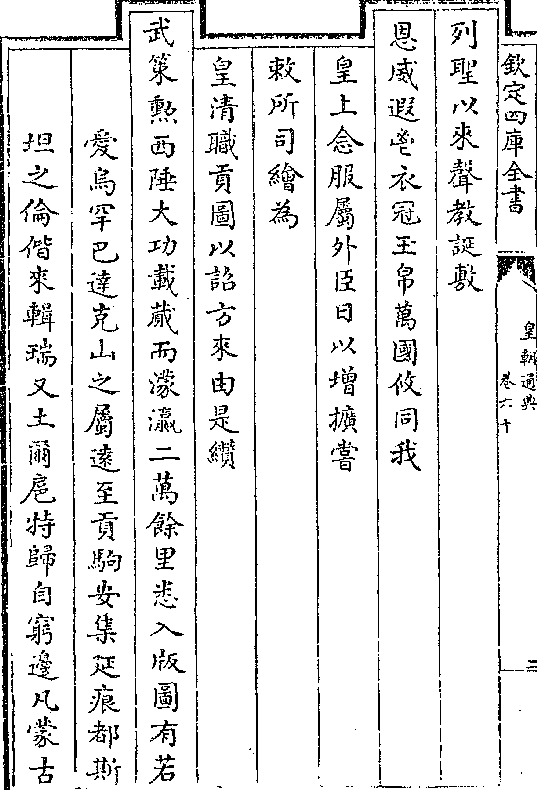 欽定四庫全書
皇朝通典
卷六十
二
列聖以來聲教誕敷
恩威遐鬯衣冠玉帛萬國攸同我
皇上念服屬外臣日以增擴嘗
敕所司繪為
皇清職貢圖以詔方來由是纘
武策勲西陲大功載蕆而濛瀛二萬餘里悉入版圖有若
愛烏罕巴達克山之屬遠至貢駒安集延痕都斯
坦之倫偕來輯瑞又土爾扈特歸自窮邊凡蒙古